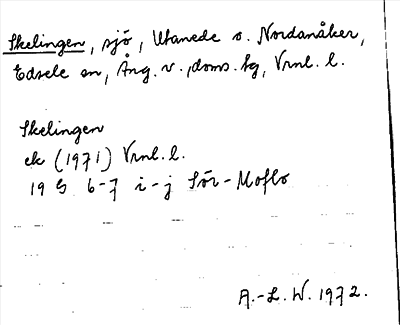 Skelingen, sjö, Utanede o. Nordanåker,
Edsele sn, Ång. v., doms. tg, Vrnl. l.
Skelingen
ek (1971) Vrnl. l.
19 G 6-7 i-j Sör-Moflo
A.-L. W. 1972.